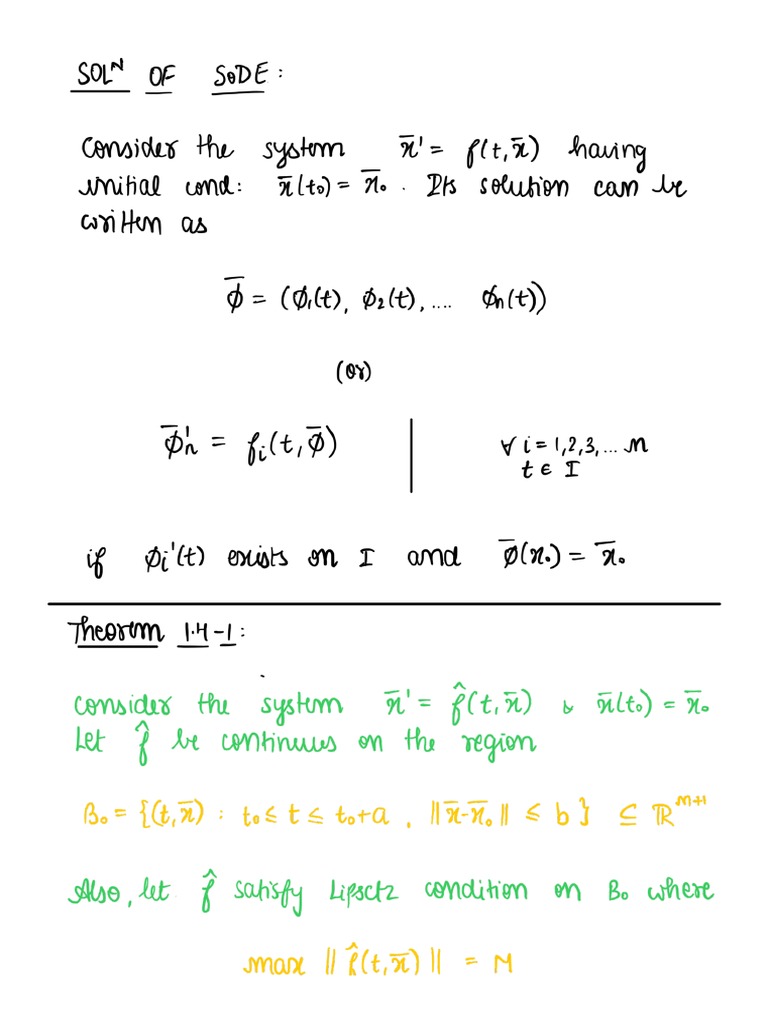 SOLᴺ OF SODE :
Consider the system x̄' = f(t, x̄) having
initial cond: x̄(t₀) = x̄₀. Its solution can be
written as
ϕ̄ = (ϕ₁(t), ϕ₂(t), .... ϕn(t))
(or)
ϕ̄'n = fi(t, ϕ̄) | ∀ i = 1,2,3,... n
t ∈ I
if ϕi'(t) exists on I and ϕ̄(x₀) = x̄₀
Theorem 1.4-1 :
Consider the system x̄' = f̂(t, x̄) & x̄(t₀) = x̄₀
Let f̂ be continuous on the region
B₀ = {(t, x̄) : t₀ ≤ t ≤ t₀+a, ||x̄-x̄₀|| ≤ b} ⊆ ℝⁿ⁺¹
Also, let f̂ satisfy Lipsctz condition on B₀ where
max ||f̂(t, x̄)|| = M